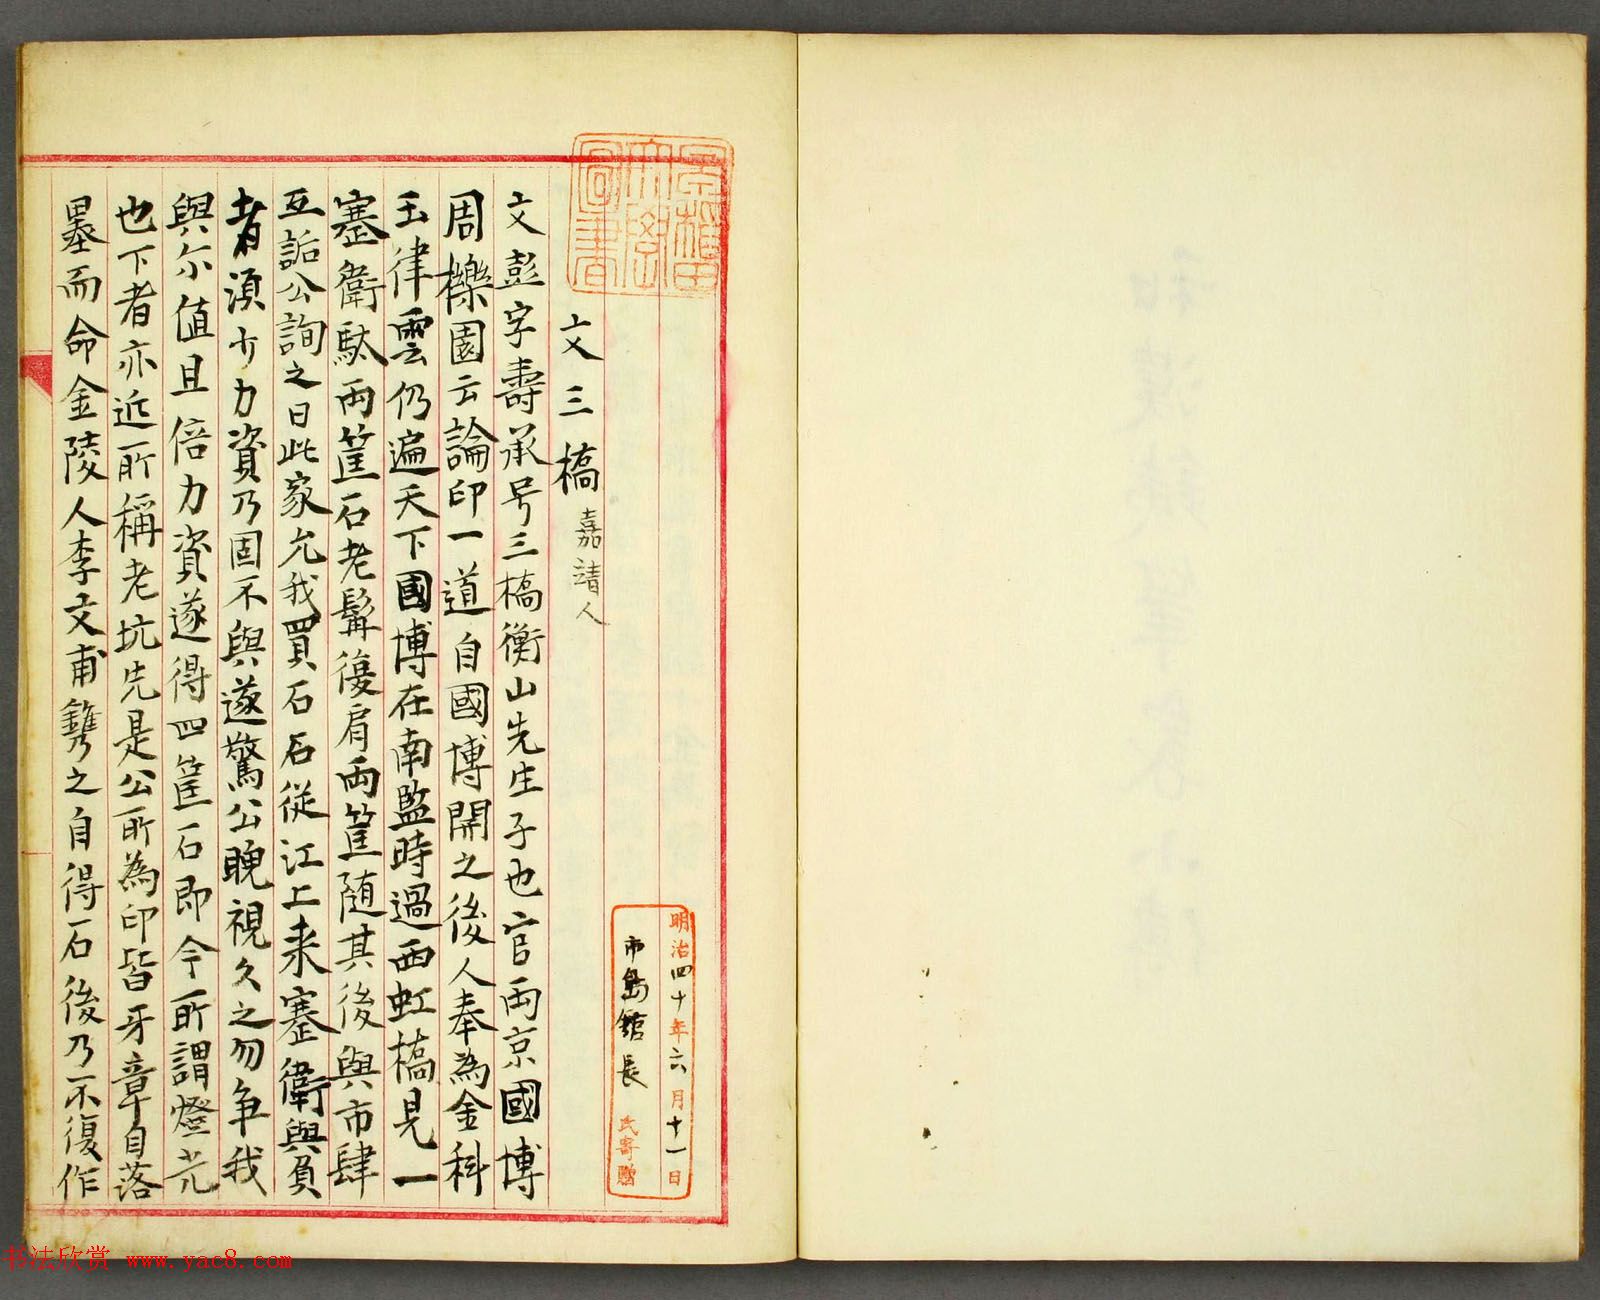 文三橋 嘉靖人
文彭字壽承号三橋衡山先生子也官両京國博
周櫟園云論印一道自國博開之後人奉為金科
玉律雲仍遍天下國博在南監時過西虹橋見一
蹇衛駄両筐石老髯復肩両筐随其後與市肆
互詬公詢之曰此家允我買石石從江上来蹇衛與負
者湏少力資乃固不與遂驚公睨視久之勿争我
與尓值且倍力資遂得四筐石即今所謂燈光
也下者亦近所稱老坑先是公所為印皆牙章自落
墨而命金陵人李文甫鐫之自得石後乃不復作
明治四十年六月十一日
市島舘長 氏寄贈
書法欣賞 www.yac8.com